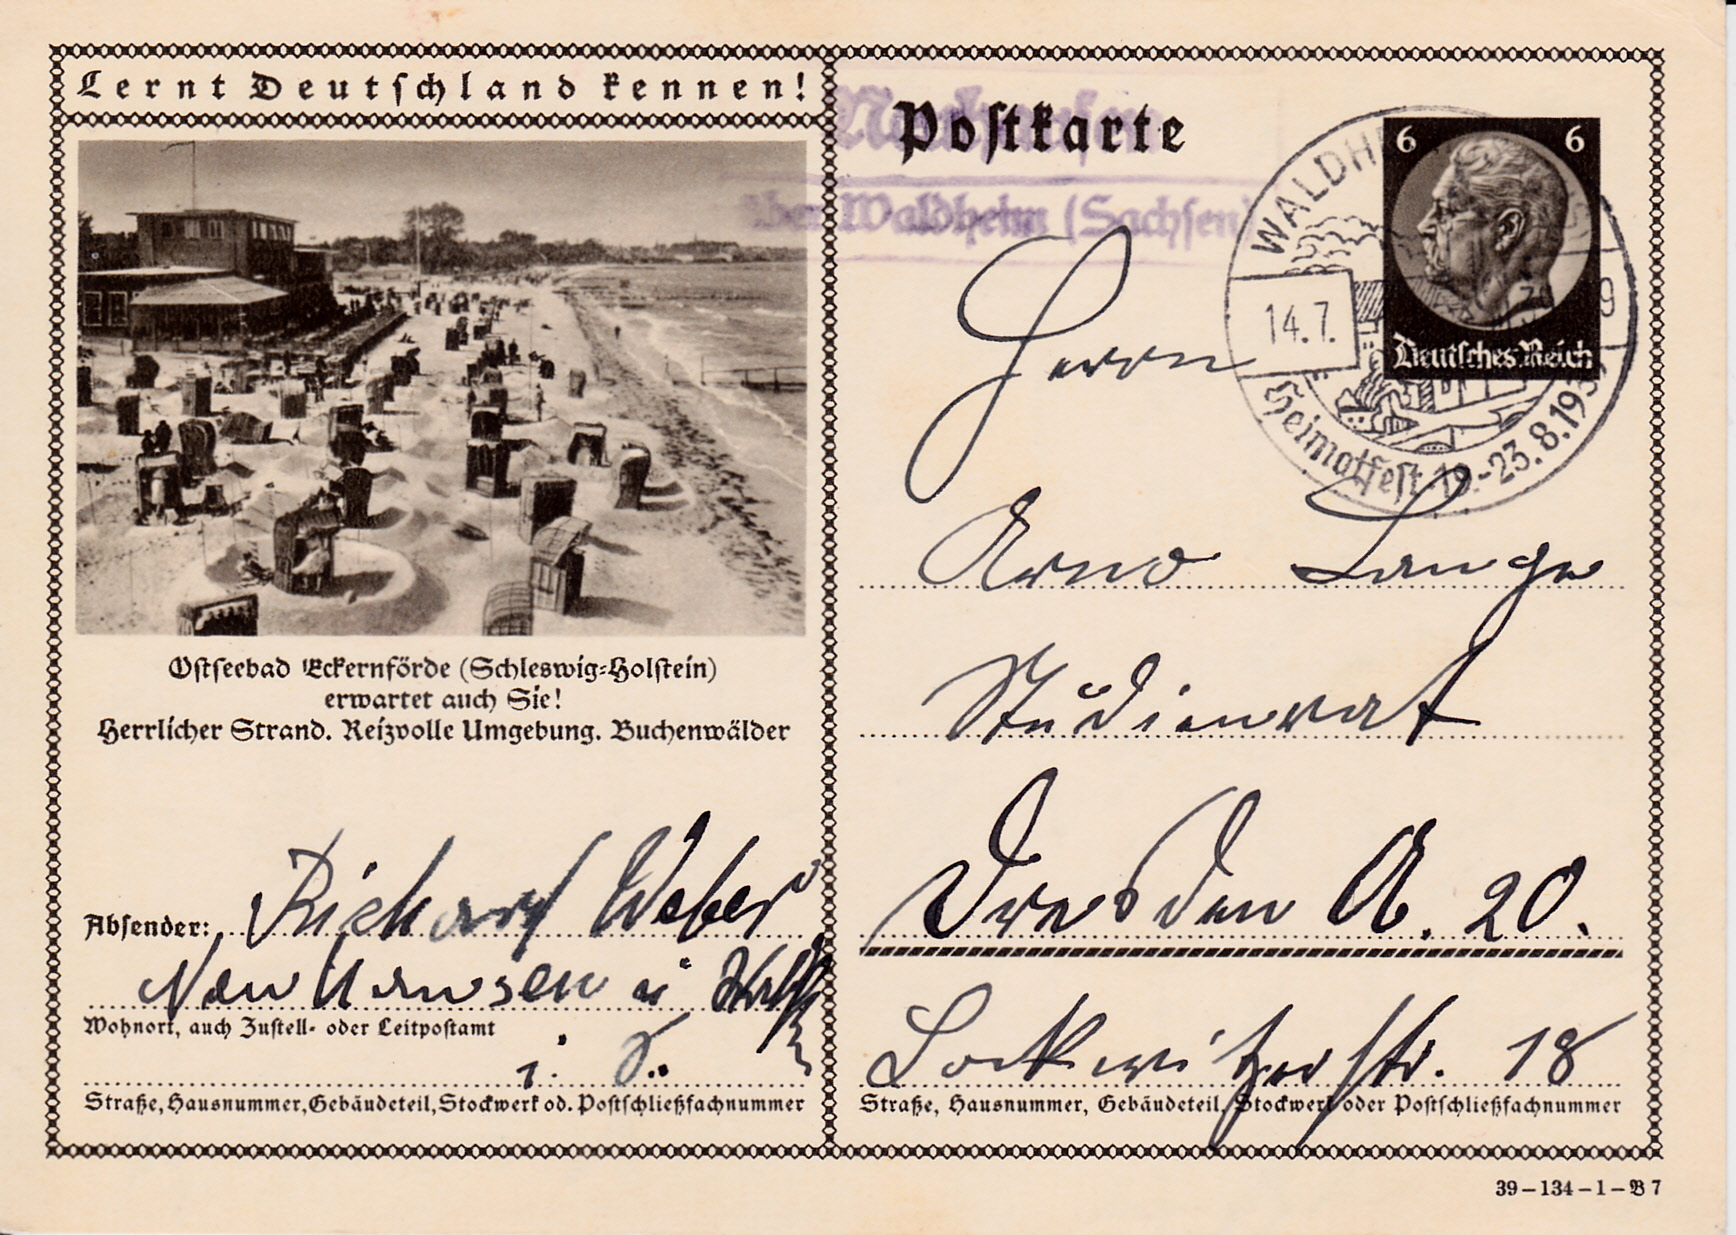 Lernt Deutschland kennen!
Ostseebad Eckernförde (Schleswig-Holstein)
erwartet auch Sie!
Herrlicher Strand. Reizvolle Umgebung. Buchenwälder
Absender: Richard Weber
Wohnort, auch Zustell- oder Leitpostamt
i. S.
Straße, Hausnummer, Gebäudeteil, Stockwerk od. Postschließfachnummer
Postkarte
über Waldheim (Sachsen)
6 6
Deutsches Reich
14.7.
Heimatfest 19.-23.8.193
Herrn
Arno Lange
Studienrat
Dresden A. 20.
Lockwitzerstr. 18
Straße, Hausnummer, Gebäudeteil, Stockwerk oder Postschließfachnummer
39-134-1-B7